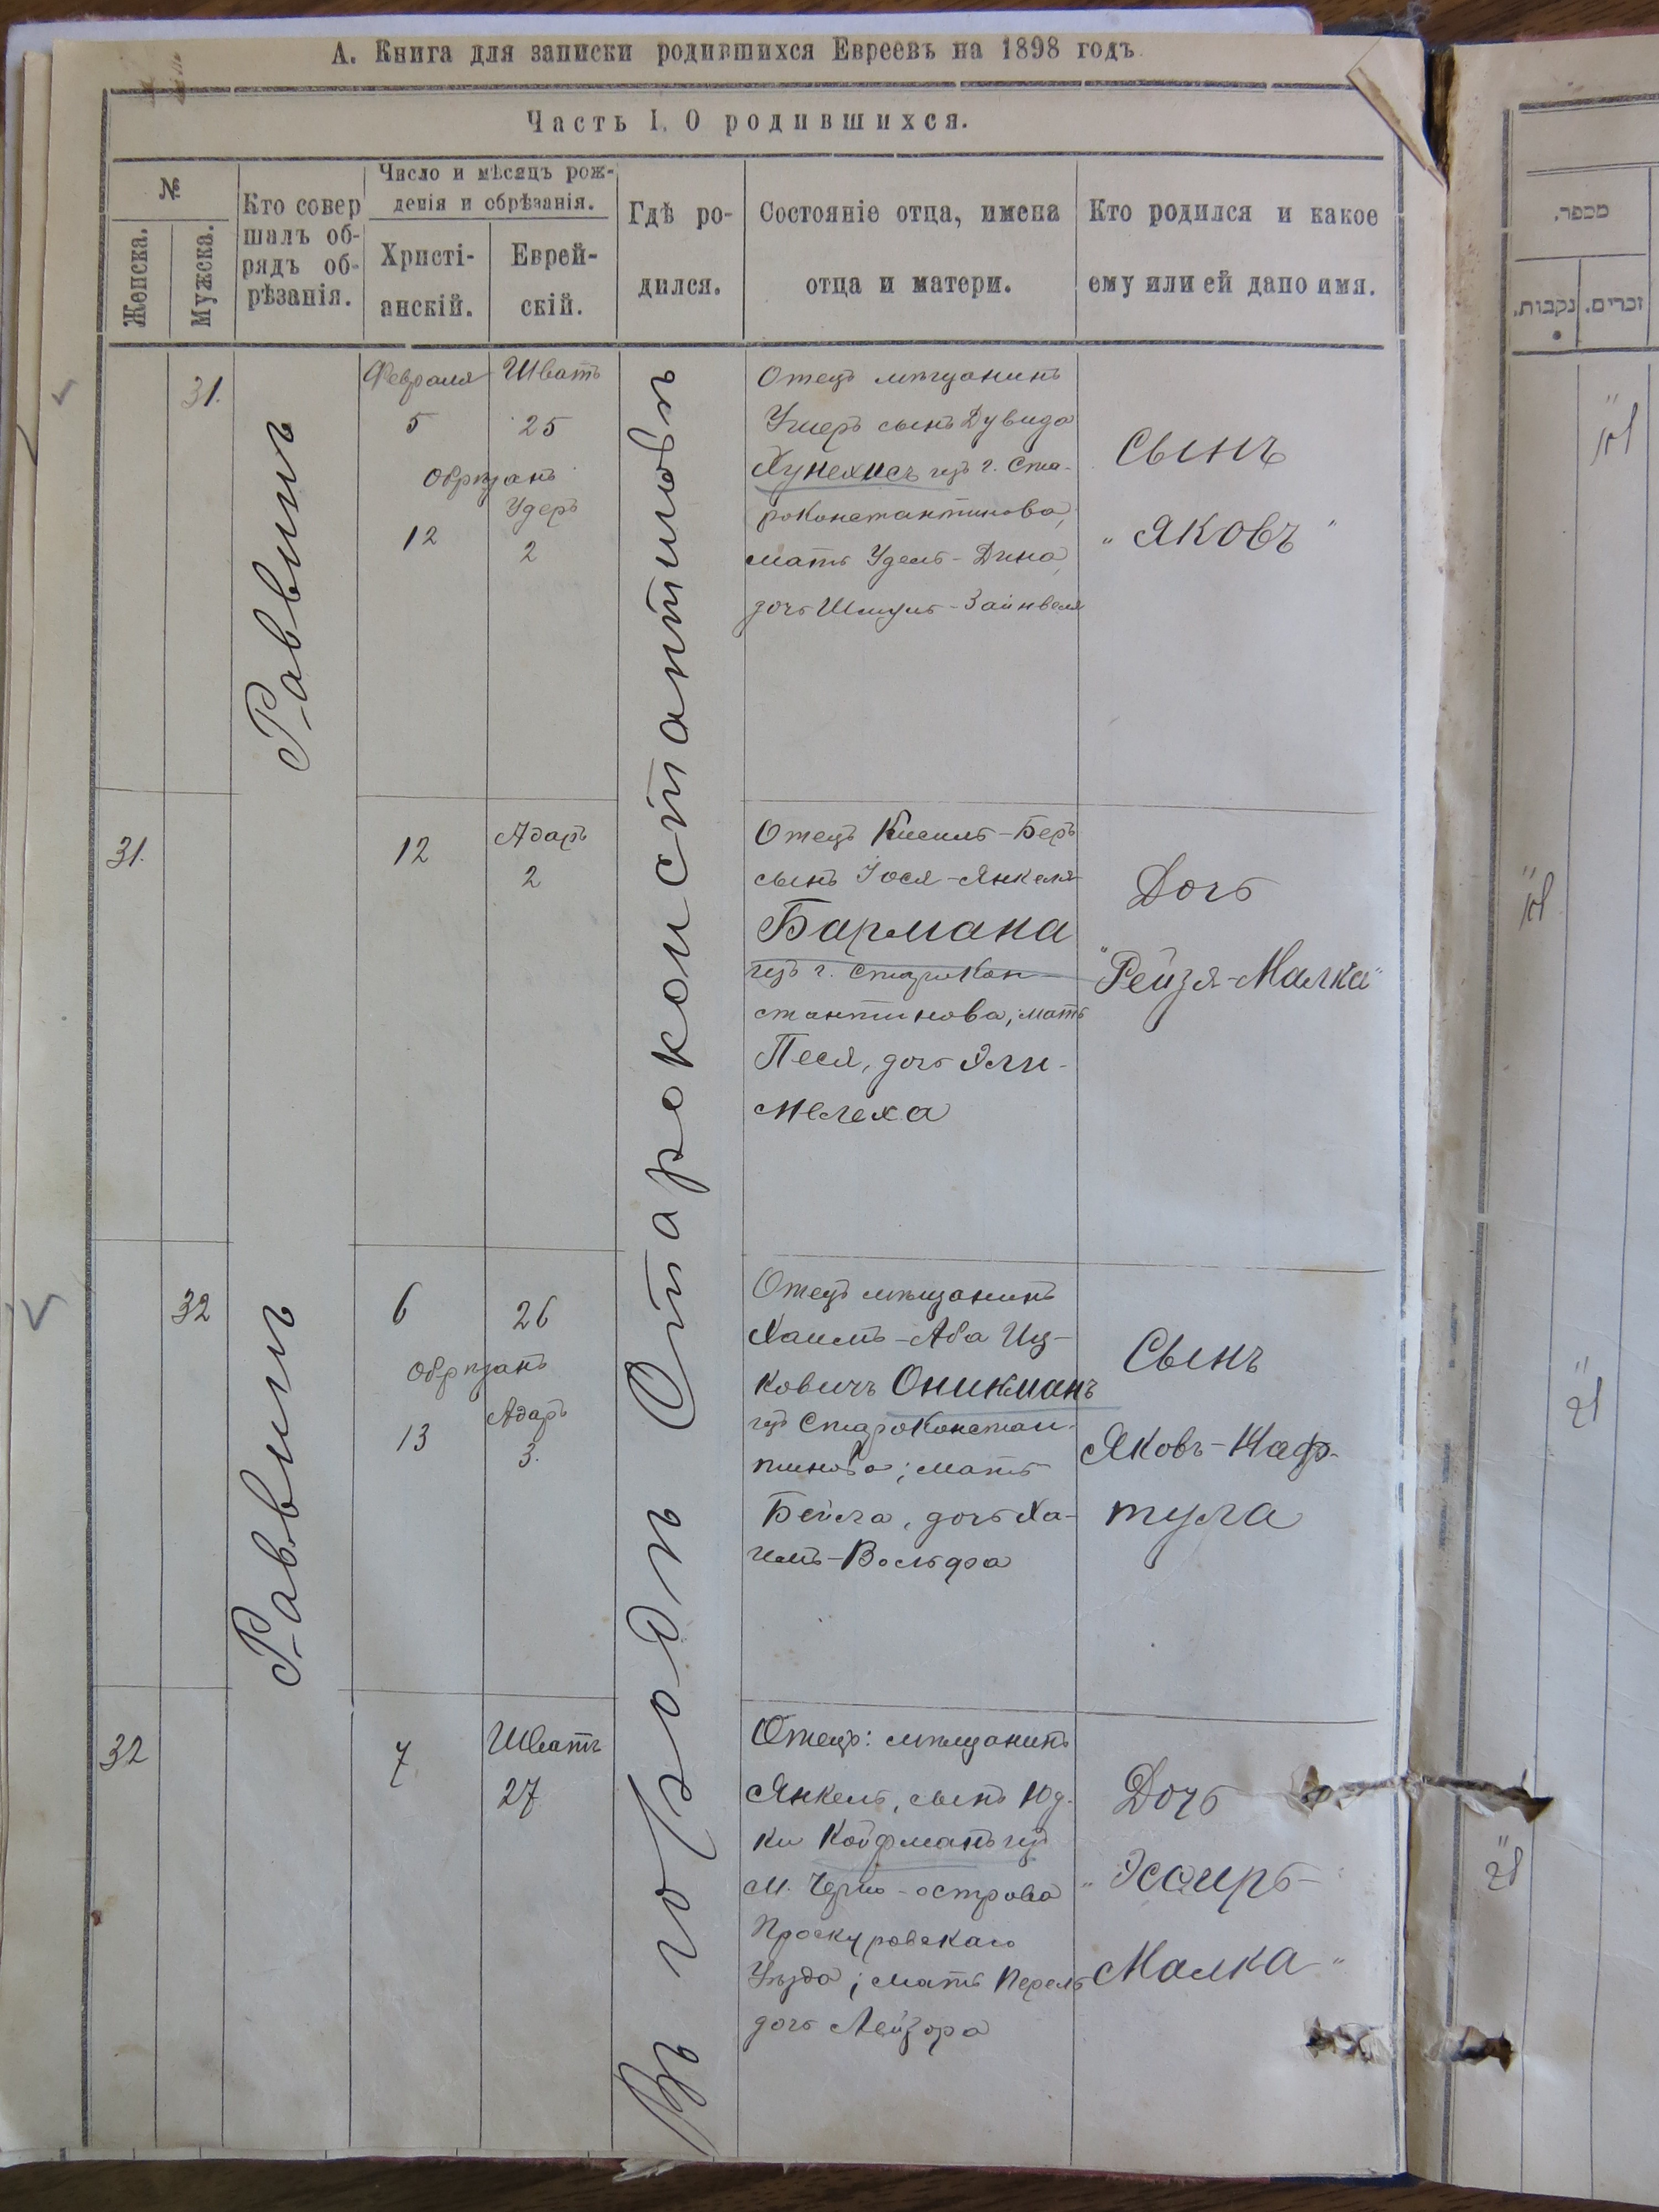 А. Книга для записки родившихся Евреевъ на 1898 годъ.
Часть I. О родившихся.
№
Женска.
Мужска.
Кто совер
шалъ об-
рядъ об-
рѣзанія.
Число и мѣсяцъ рож-
денія и обрѣзанія.
Христі-
анскій.
Еврей-
скій.
Гдѣ ро-
дился.
Состояніе отца, имена
отца и матери.
Кто родился и какое
ему или ей дано имя.
Въ городѣ Староконстантиновѣ
31.
Раввинъ
Февраля
5
Шватъ
25
Обрѣзанъ
12
2
Отецъ мѣщанинъ
Ушеръ сынъ Дувида
изъ г. Ста-
роконстантинова,
мать Удель-Дина,
дочь Шмуль-Зайнвеля
Сынъ
„Яковъ"
31.
12
Адаръ
2
Отецъ Кисиль-Беръ
сынъ Іося-Янкеля
Бармана
изъ г. Старокон-
стантинова; мать
Песя, дочь Эли-
мелеха
Дочь
"Рейзя-Малка"
32
Раввинъ
6
26
Обрѣзанъ
13
Адаръ
3.
Отецъ мѣщанинъ
Хаимъ-Аба Иц-
ковичъ Оникманъ
изъ Староконстан-
тинова; мать
Бейла, дочь Ха-
имъ-Вольфа
Сынъ
Яковъ-Наф-
тула
32
7
Шватъ
27
Отецъ: мѣщанинъ
Янкель, сынъ Юд-
ки Койфманъ изъ
м. Черно-острова
Проскуровскаго
Уѣзда; мать Перель
дочь Лейзора
Дочь
„Эсѳирь-
Малка"
מספר.
נקבות.
זכרים.